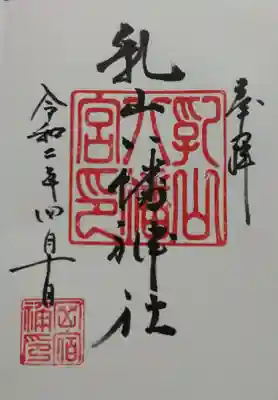 奉拝
乳山八幡神社
令和二年四月十日
乳山
八幡
宮印